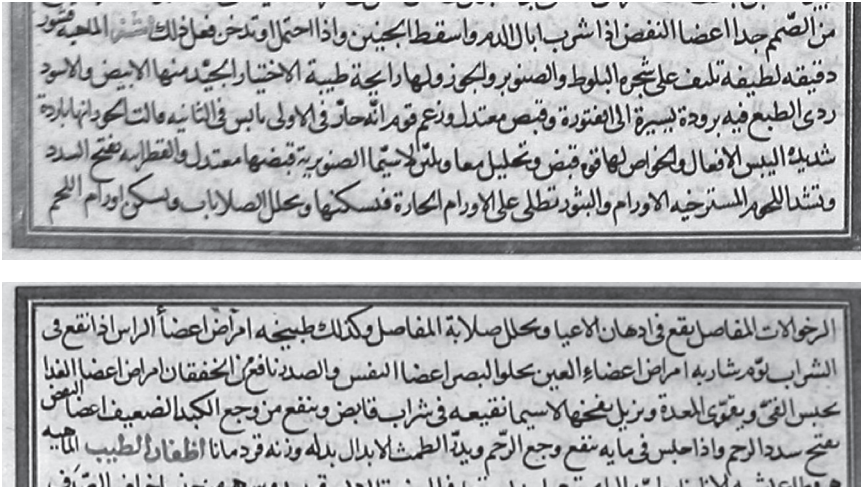 من الصّمم جدا اعضا النفض اذا شرب ابال الدم واسقط الجنين واذا احتمل او تدخن فعل ذلك اشنه الماهيه قشور
دقيقه لطيفه تلتف على شجره البلوط والصنوبر والجوز ولها رايحة طيبة الاختيار الجيّد منها الابيض والاسود
ردى الطبع فيه برودة يسيرة الى الفتورة وقبض معتدل وزعم قوم انّه حارّ فى الاولى يابس فى الثانيه وقالت الخوز انها باردة
شديدة اليبس الافعال والخواص لها قوة قبض وتحليل معا وتليّن لاسيّما الصنوبرية قبضها معتدل والقطرانيه تفتح السدد
وتشدّ اللحوم المسترخيه الاورام والبثور تطلى على الاورام الحارة فتسكنها وتحلل الصلابات وتسكن اورام اللحم
الرخو الات المفاصل يقع فى ادهان الاعيا وتحلل صلابة المفاصل وكذلك طبيخه امراض اعضأ الراس اذا نقع فى
الشراب نوّم شاربه امراض اعضاء العين يجلوا البصر اعضا النفس والصدر نافع من الخفقان امراض اعضا الغذا
يحبس القىّ ويقوّى المعدة ويزيل نفخها لاسيما نقيعه فى شراب قابض وينفع من وجع الكبد الضعيف اعضا النفض
يفتح سدد الرحم واذا جلس فى مايه نفع وجع الرّحم ويدرّ الطمث الابدال بدله وزنه قردمانا اظفار الطيب الماهيه